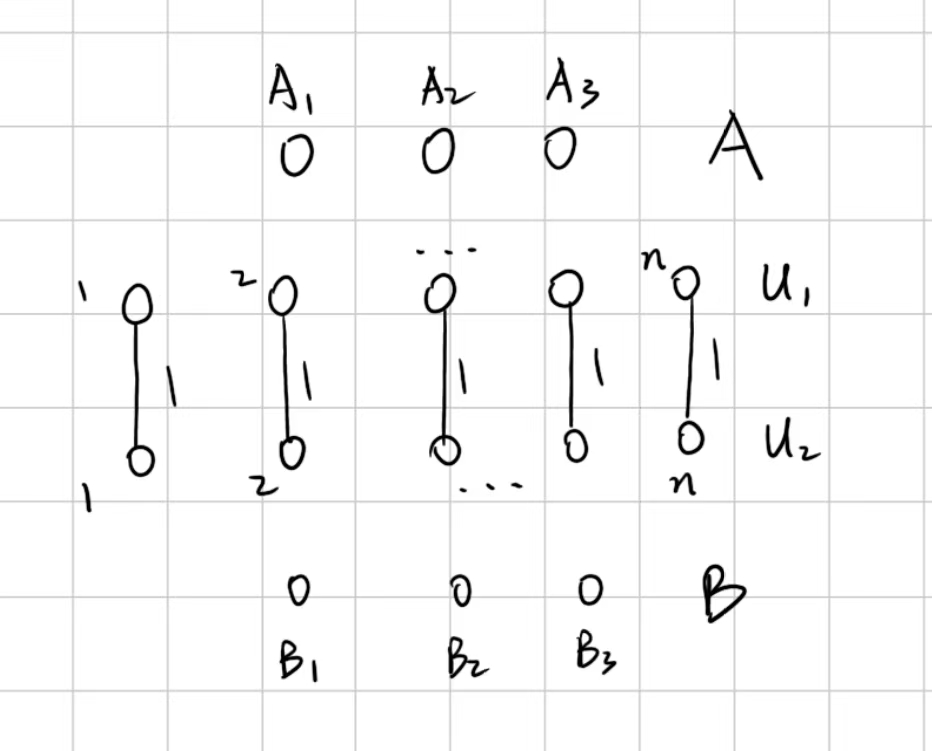 A₁ A₂ A₃
A
1 2 ... n U₁
1 1 1 1 1
1 2 ... n U₂
B
B₁ B₂ B₃